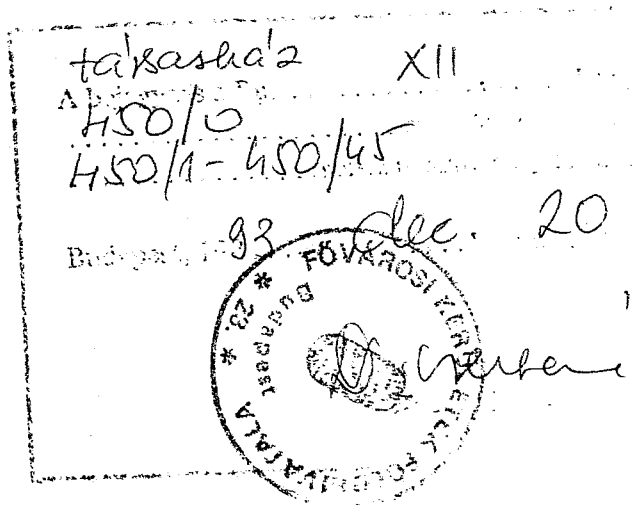 társasház XII
450/0
450/1 - 450/45
Budapest, 1993 dec. 20
FŐVÁROSI KERÜLETEK FÖLDHIVATALA * 23. *
Budapest